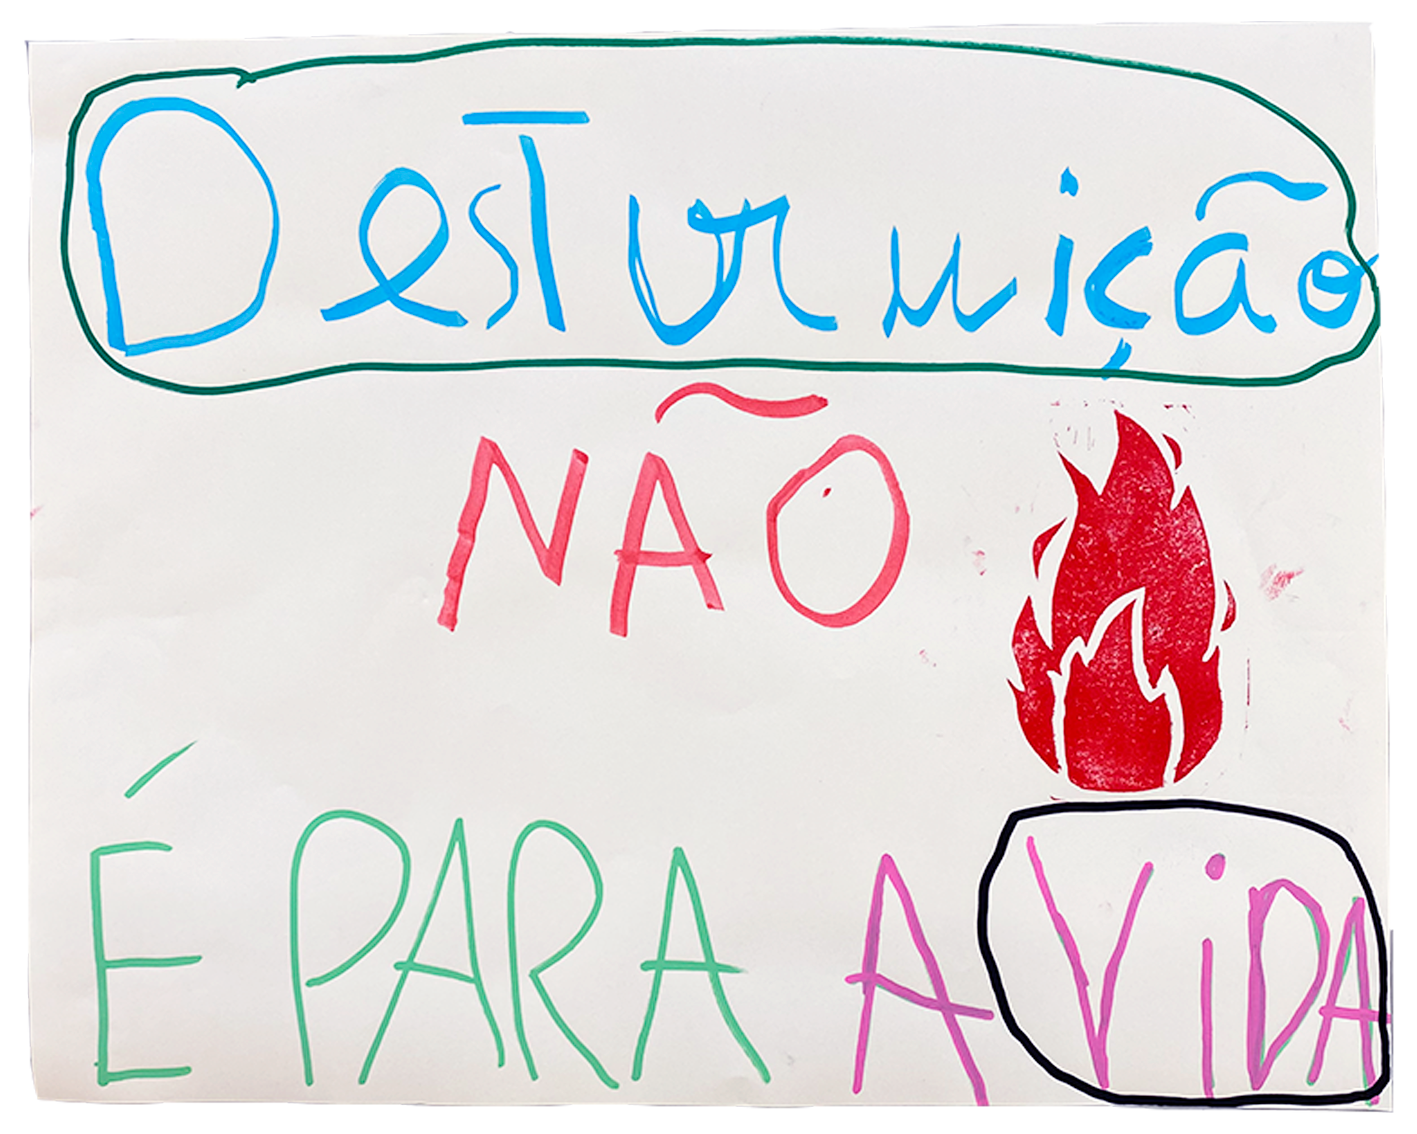 DesTuruição
NÃO
É PARA A ViDA